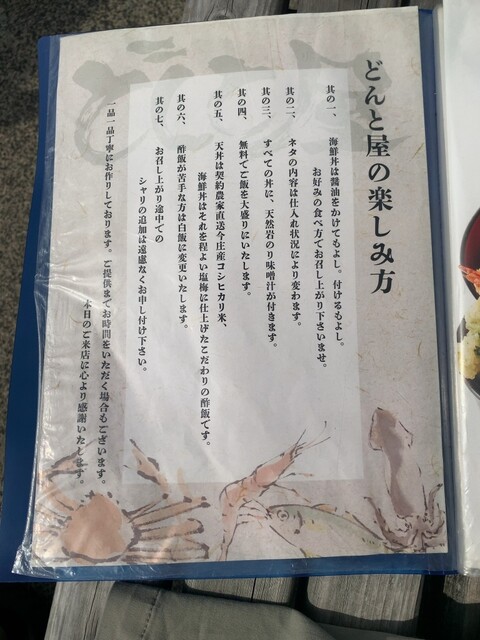 どんと屋の楽しみ方
其の一、 海鮮丼は醤油をかけてもよし。付けるもよし。
お好みの食べ方でお召し上がり下さいませ。
其の二、 ネタの内容は仕入れ状況により変わります。
其の三、 すべての丼に、天然岩のり味噌汁が付きます。
其の四、 無料でご飯を大盛りにいたします。
其の五、 天丼は契約農家直送今庄産コシヒカリ米、
海鮮丼はそれを程よい塩梅に仕上げたこだわりの酢飯です。
其の六、 酢飯が苦手な方は白飯に変更いたします。
其の七、 お召し上がり途中での
シャリの追加は遠慮なくお申し付け下さい。
一品一品丁寧にお作りしております。ご提供までお時間をいただく場合もございます。
本日のご来店に心より感謝いたします。